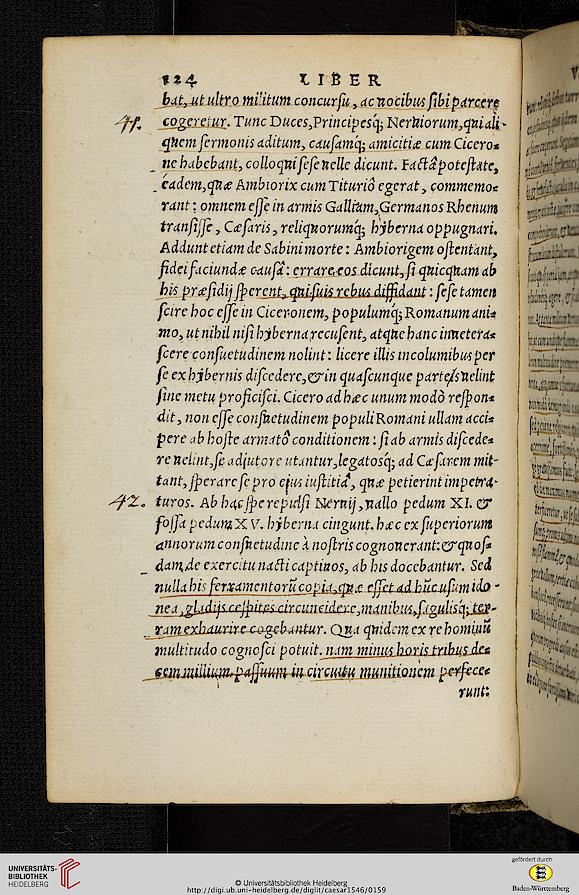 124 LIBER
bat, ut ultro militum concursu, ac vocibus sibi parcere
41. cogeretur. Tunc Duces, Principesq́; Neruiorum, qui ali-
quem sermonis aditum, causamq́; amicitiæ cum Cicero-
ne habebant, colloqui sese velle dicunt. Factâ potestate,
eadem, quæ Ambiorix cum Tituriô egerat, commemo-
rant: omnem esse in armis Galliam, Germanos Rhenum
transisse, Cæsaris, reliquorumq́; hÿberna oppugnari.
Addunt etiam de Sabini morte: Ambiorigem ostentant,
fidei faciundæ causâ: errare eos dicunt, si quicquam ab
his præsidij sperent, qui suis rebus diffidant: sese tamen
scire hoc esse in Ciceronem, populumq́; Romanum ani-
mo, ut nihil nisi hÿberna recusent, atque hanc inuetera-
scere consuetudinem nolint: licere illis incolumibus per
se ex hÿbernis discedere, & in quascunque partes uelint
sine metu proficisci. Cicero ad hæc unum modò respon-
dit, non esse consuetudinem populi Romani ullam acci-
pere ab hoste armatô conditionem: si ab armis discede-
re velint, se adjutore utantur, legatosq́; ad Cæsarem mit-
tant, sperare se pro ejus iustitiâ, quæ petierint impetra-
42. turos. Ab hac spe repulsi Neruij, vallo pedum XI. &
fossa pedum XV. hÿberna cingunt. hæc ex superiorum
annorum consuetudine à nostris cognouerant: & quos-
dam, de exercitu nacti captiuos, ab his docebantur. Sed
nulla his ferramentorũ copia, quæ esset ad hũc usum ido-
nea, gladijs cespites circuncidere, manibus, sagulisq́; ter-
ram exhaurire cogebantur. Qua quidem ex re hominũ
multitudo cognosci potuit. nam minus horis tribus de-
cem millium. passuum in circuitu munitionem perfece-
runt:
UNIVERSITÄTS-
BIBLIOTHEK
HEIDELBERG
© Universitätsbibliothek Heidelberg
http://digi.ub.uni-heidelberg.de/diglit/caesar1546/0159
gefördert durch
Baden-Württemberg